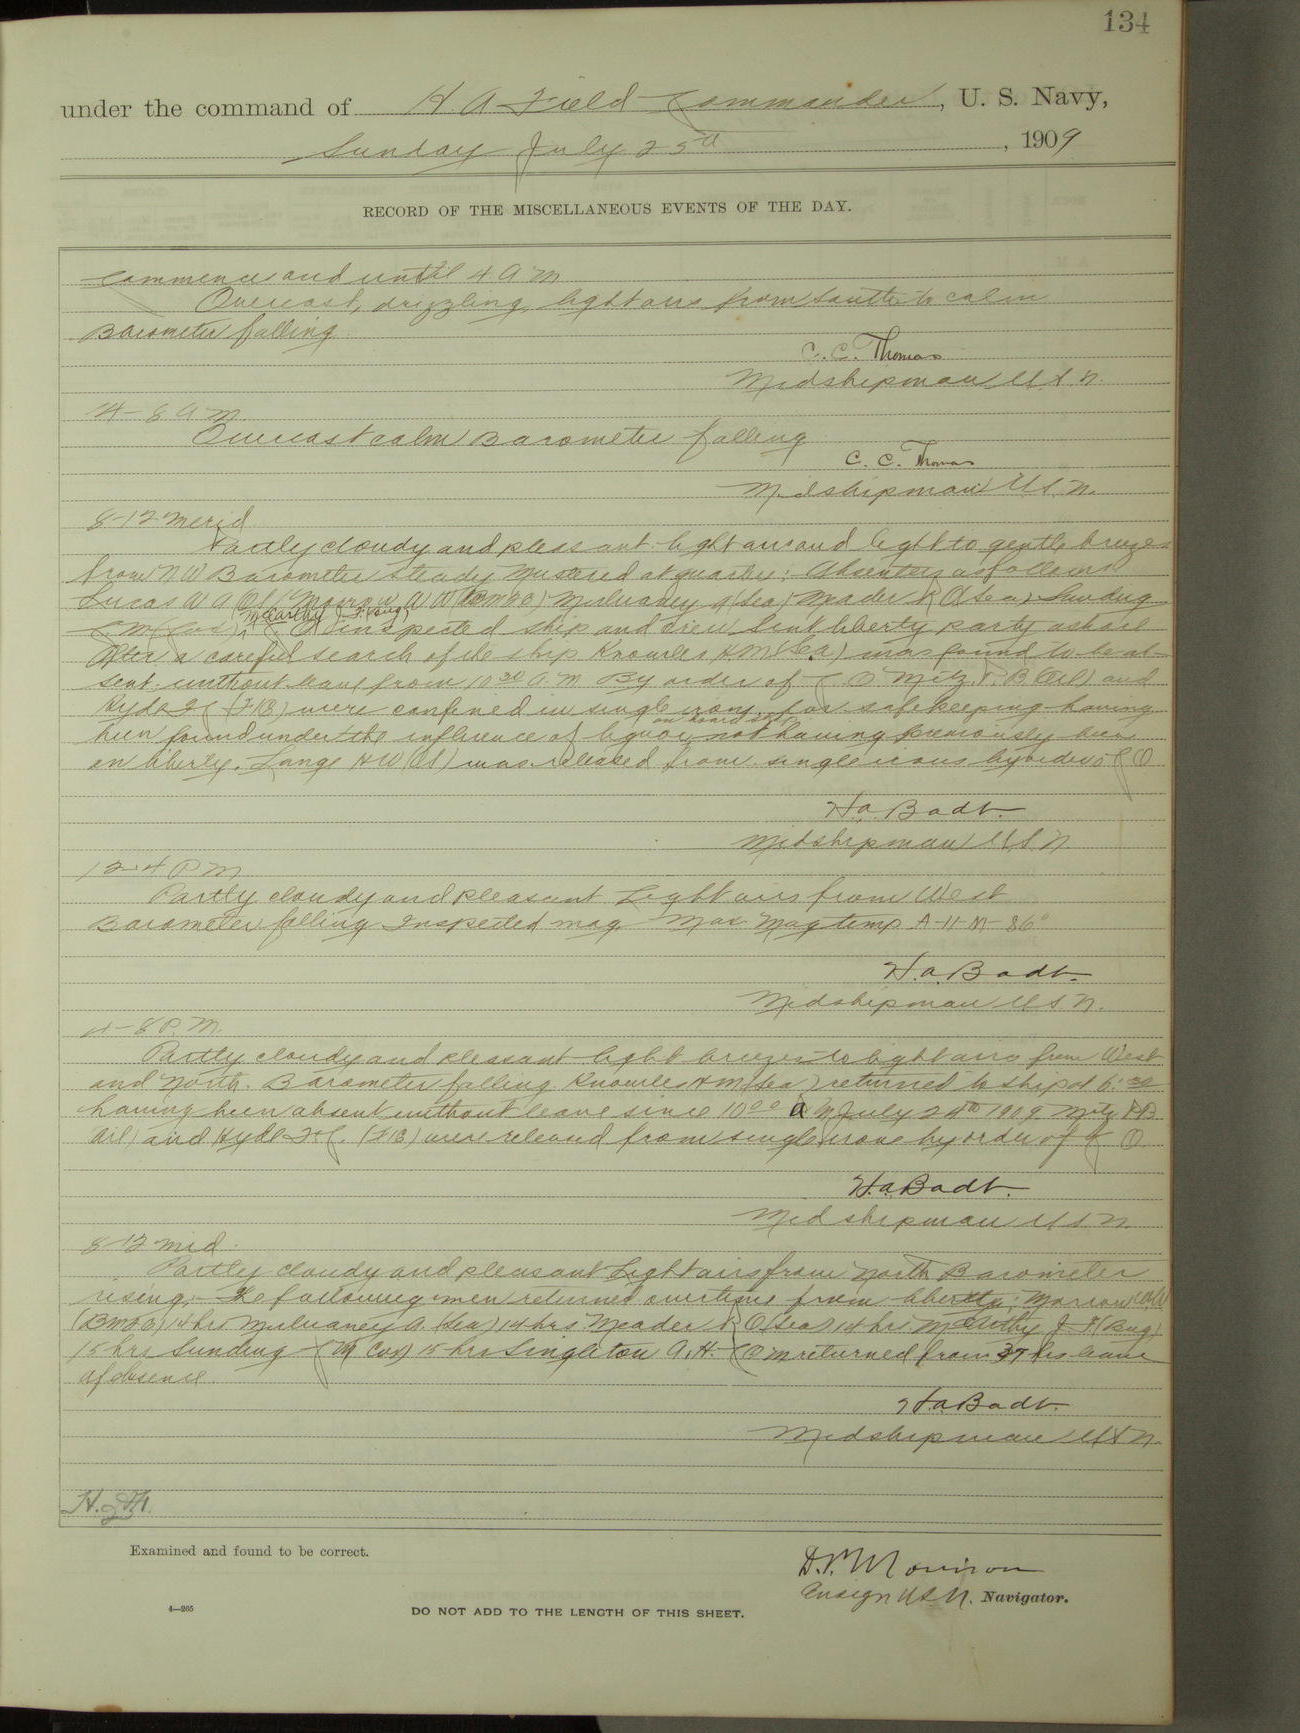 134
under the command of H. A. Field Commander, U. S. Navy,
Sunday July 25th, 1909
RECORD OF THE MISCELLANEOUS EVENTS OF THE DAY.
Commence and until 4 A M
Overcast, drizzling, light airs from South to calm
Barometer falling
C. C. Thomas
Midshipman U.S.N.
4-8 A M
Overcast calm Barometer falling
C. C. Thomas
Midshipman U.S.N.
8-12 Merid
Partly cloudy and pleasant light airs and light to gentle breeze
from NW Barometer steady Mustered at quarters; Absentees as follows
Lucas W A (OS) Morrow W W Mulvaney A (Sea) Meader R O (Sea) Sunding
McCarthy J. F. (Bug)
C M (Cox), C O inspected ship and crew Sent liberty party ashore
After a careful search of the ship Knowles H M (Sea) was found to be ab-
sent without leave from 10 30 A. M. By order of C. O. Metz P. B. (Oil) and
Hyde F C (F1C) were confined in single irons for safe keeping having
on board ship
been found under the influence of liquor, not having previously been
on liberty. Lange H W (OS) was released from single irons by order of C O
H. a. Badt.
Midshipman U.S.N.
12-4 P M
Partly cloudy and pleasant Light airs from West
Barometer falling Inspected mag Max Mag temp A-11-M-86°
H. a. Badt.
Midshipman U S N.
4-8 P. M.
Partly cloudy and pleasant light breezes to light airs from West
and North. Barometer falling Knowles H M (Sea) returned to ship at 6:
having been absent without leave since 10 00 a M July 24th 1909 Metz P B
Oil) and Hyde F C. (F1C) were released from single irons by order of C O
H. a. Badt.
Midshipman U S N
8-12 Mid.
Partly cloudy and pleasant Light airs from North Barometer
rising. The following men returned overtime from liberty; Morrow W W
14 hrs Mulvaney A. (Sea) 14 hrs Meader R O (Sea) 14 hrs McCarthy J. F. (Bug)
15 hrs Sunding C M Cox) 15 hrs Singleton A. H. C O M returned from hrs leave
of absence.
H. a. Badt.
Midshipman U S N.
Examined and found to be correct.
D. P. Morrison
Ensign U.S.N. Navigator.
4—265
DO NOT ADD TO THE LENGTH OF THIS SHEET.